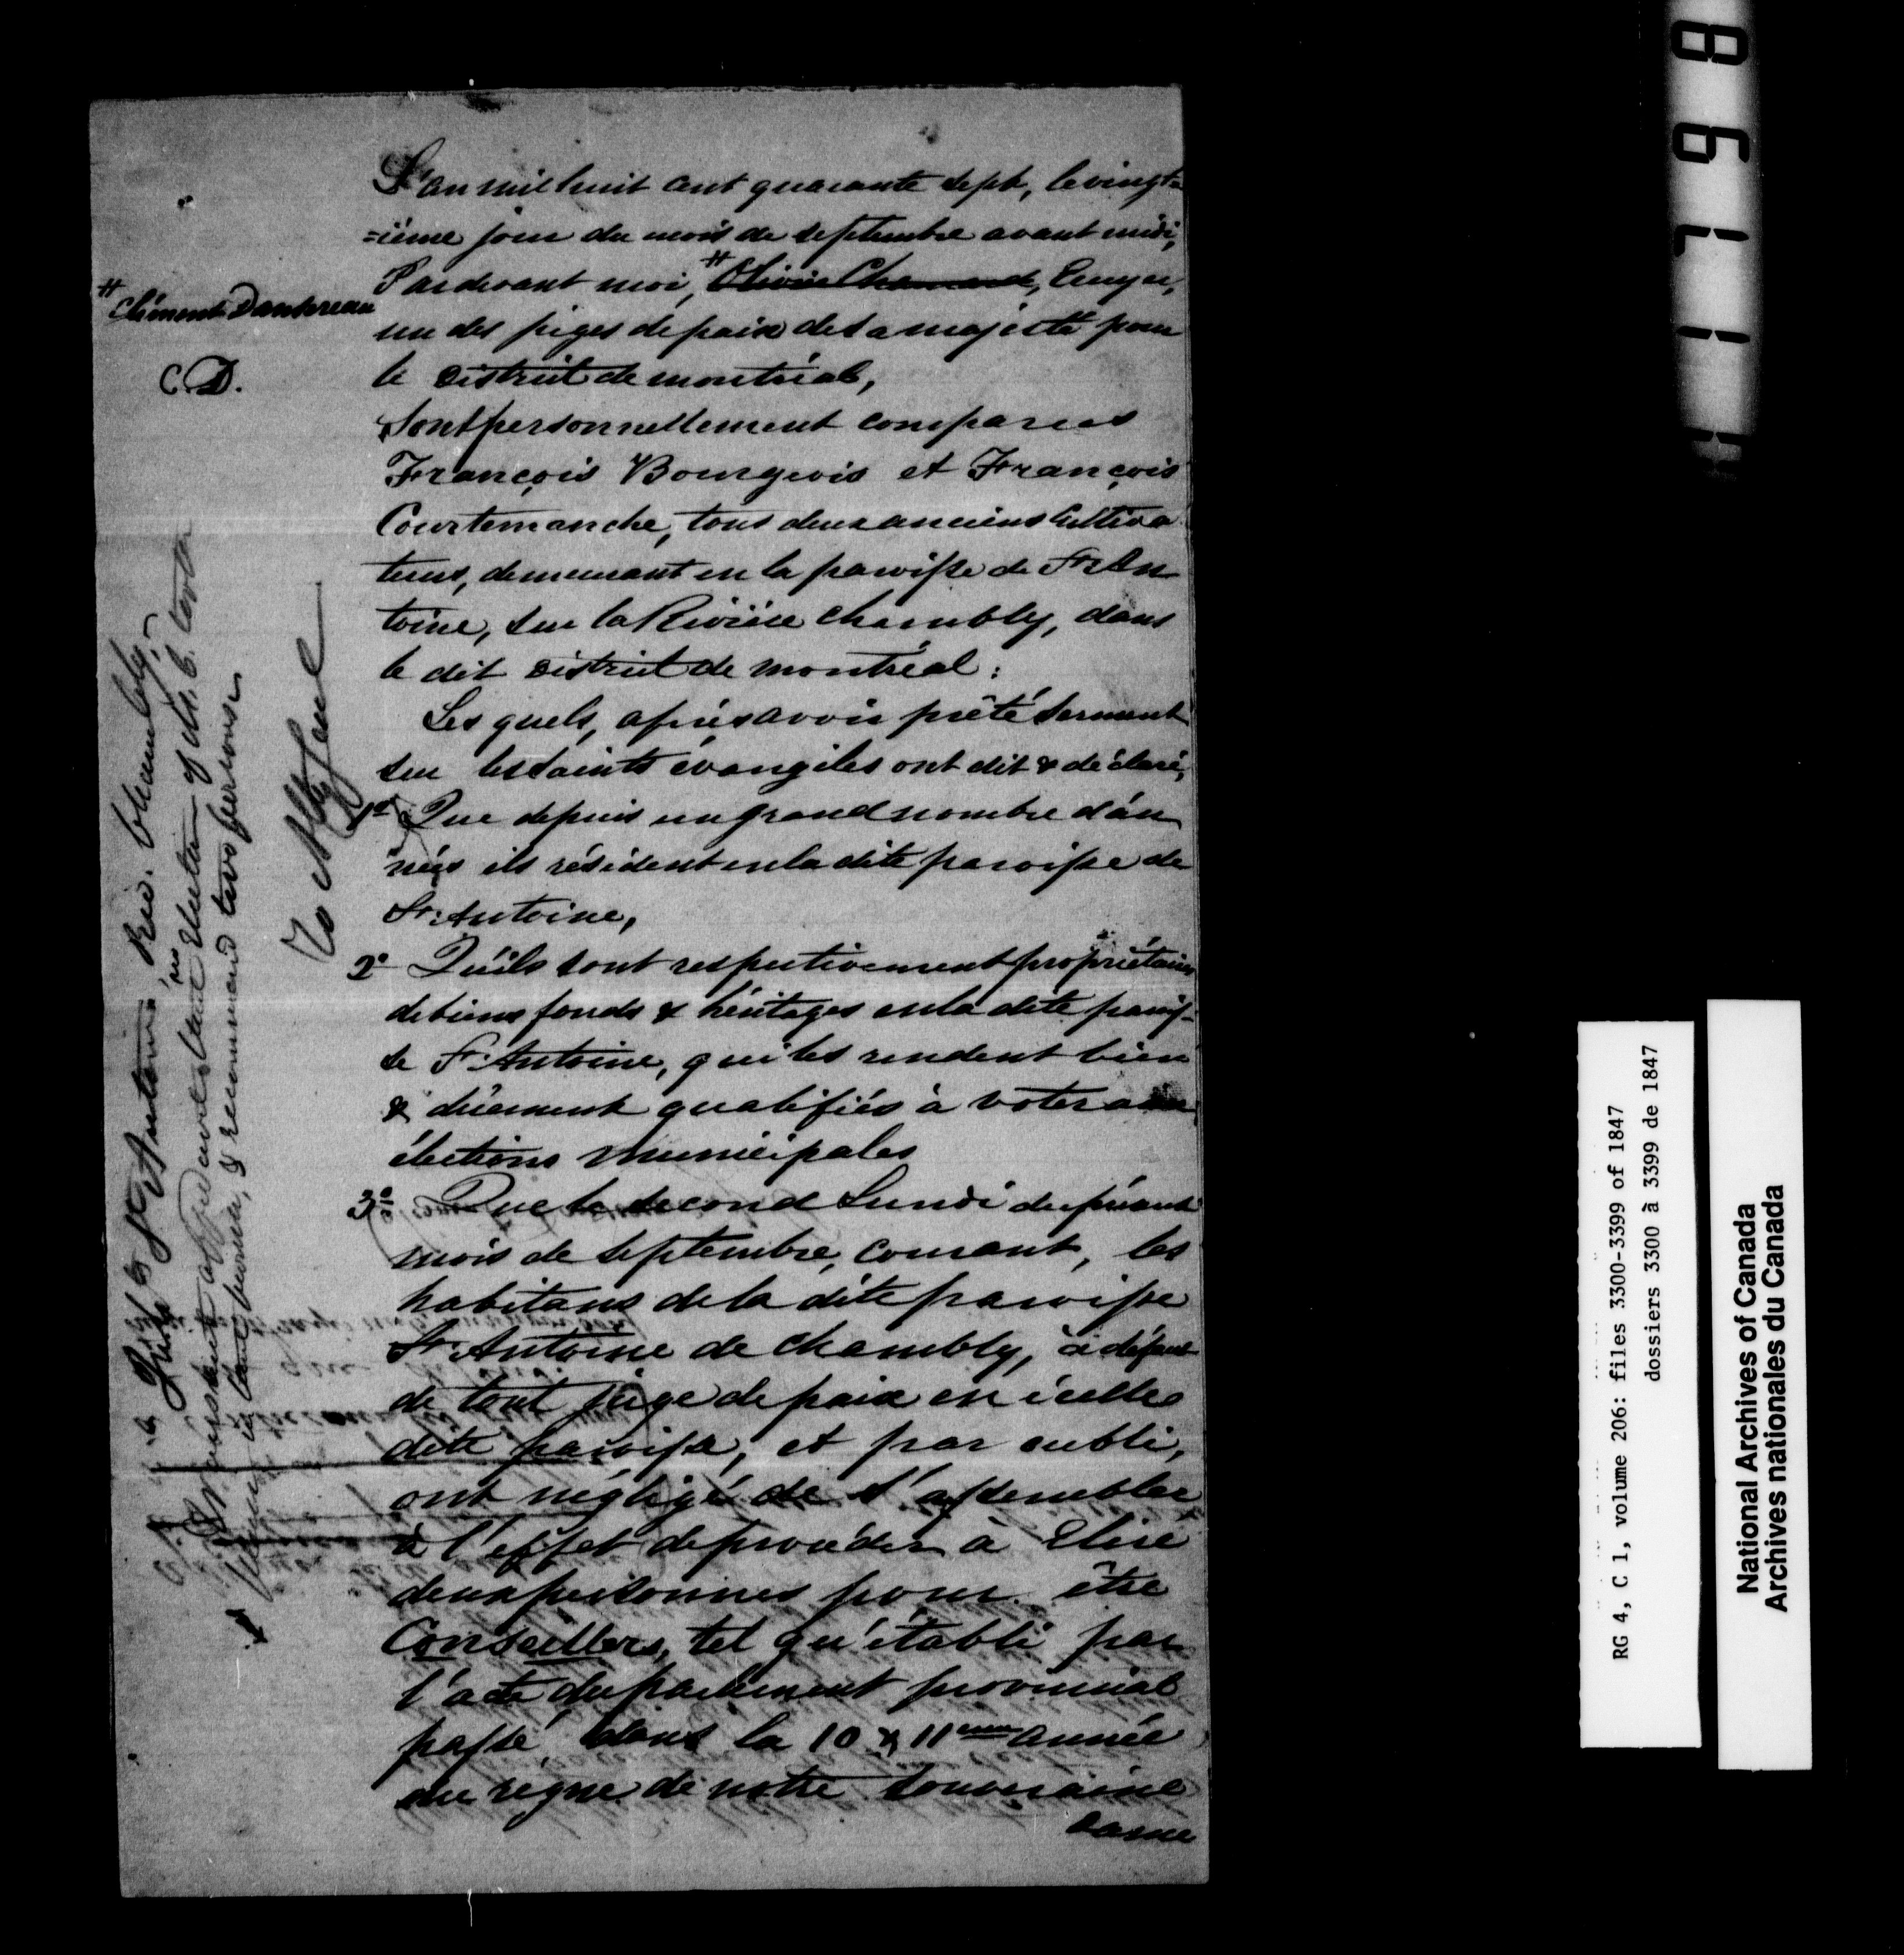 L'an mil huit cent quarante sept, le vingt-
=ième jour du mois de septembre avant midi,
Pardevant moi, # Olivier Chamard, Ecuyer,
# Clément Dansereau
un des juges de paix de sa majesté pour
C. D.
le District de montréal,
Sont personnellement comparus
François Bourgeois et François
Courtemanche, tous deux anciens Cultiva
teurs, demeurant en la paroisse de St. An
toine, sur la Rivière chambly, dans
le dit District de montréal :
Les quels, après avoir prêté serment
sur les saints évangiles ont dit & déclaré,
1o Que depuis un grand nombre d'an
nées ils résident en la dite paroisse de
St. Antoine,
2o Qu'ils sont respectivement propriétaires
de biens fonds & héritages en la dite parois-
se St. Antoine, qui les rendent bien
& duement qualifiés à voter aux
élections municipales
3o Que le second Lundi du présent
mois de septembre, courant, les
habitans de la dite paroisse
St. Antoine de chambly, à défaut
de tout juge de paix en icelle
dite paroisse, et par oubli,
ont négligé de s'assembler
à l'effet de procéder à Elire
deux personnes pour être
Conseillers, tel qu'établi par
l'acte du parlement provincial
passé dans la 10 & 11eme année
du règne de notre Souveraine
Dame
St Antoine Riv. Chambly,
election of M. C.
& recommend two persons
To Atty Genl
11798
RG 4, C 1, volume 206: files 3300-3399 of 1847
dossiers 3300 à 3399 de 1847
National Archives of Canada
Archives nationales du Canada